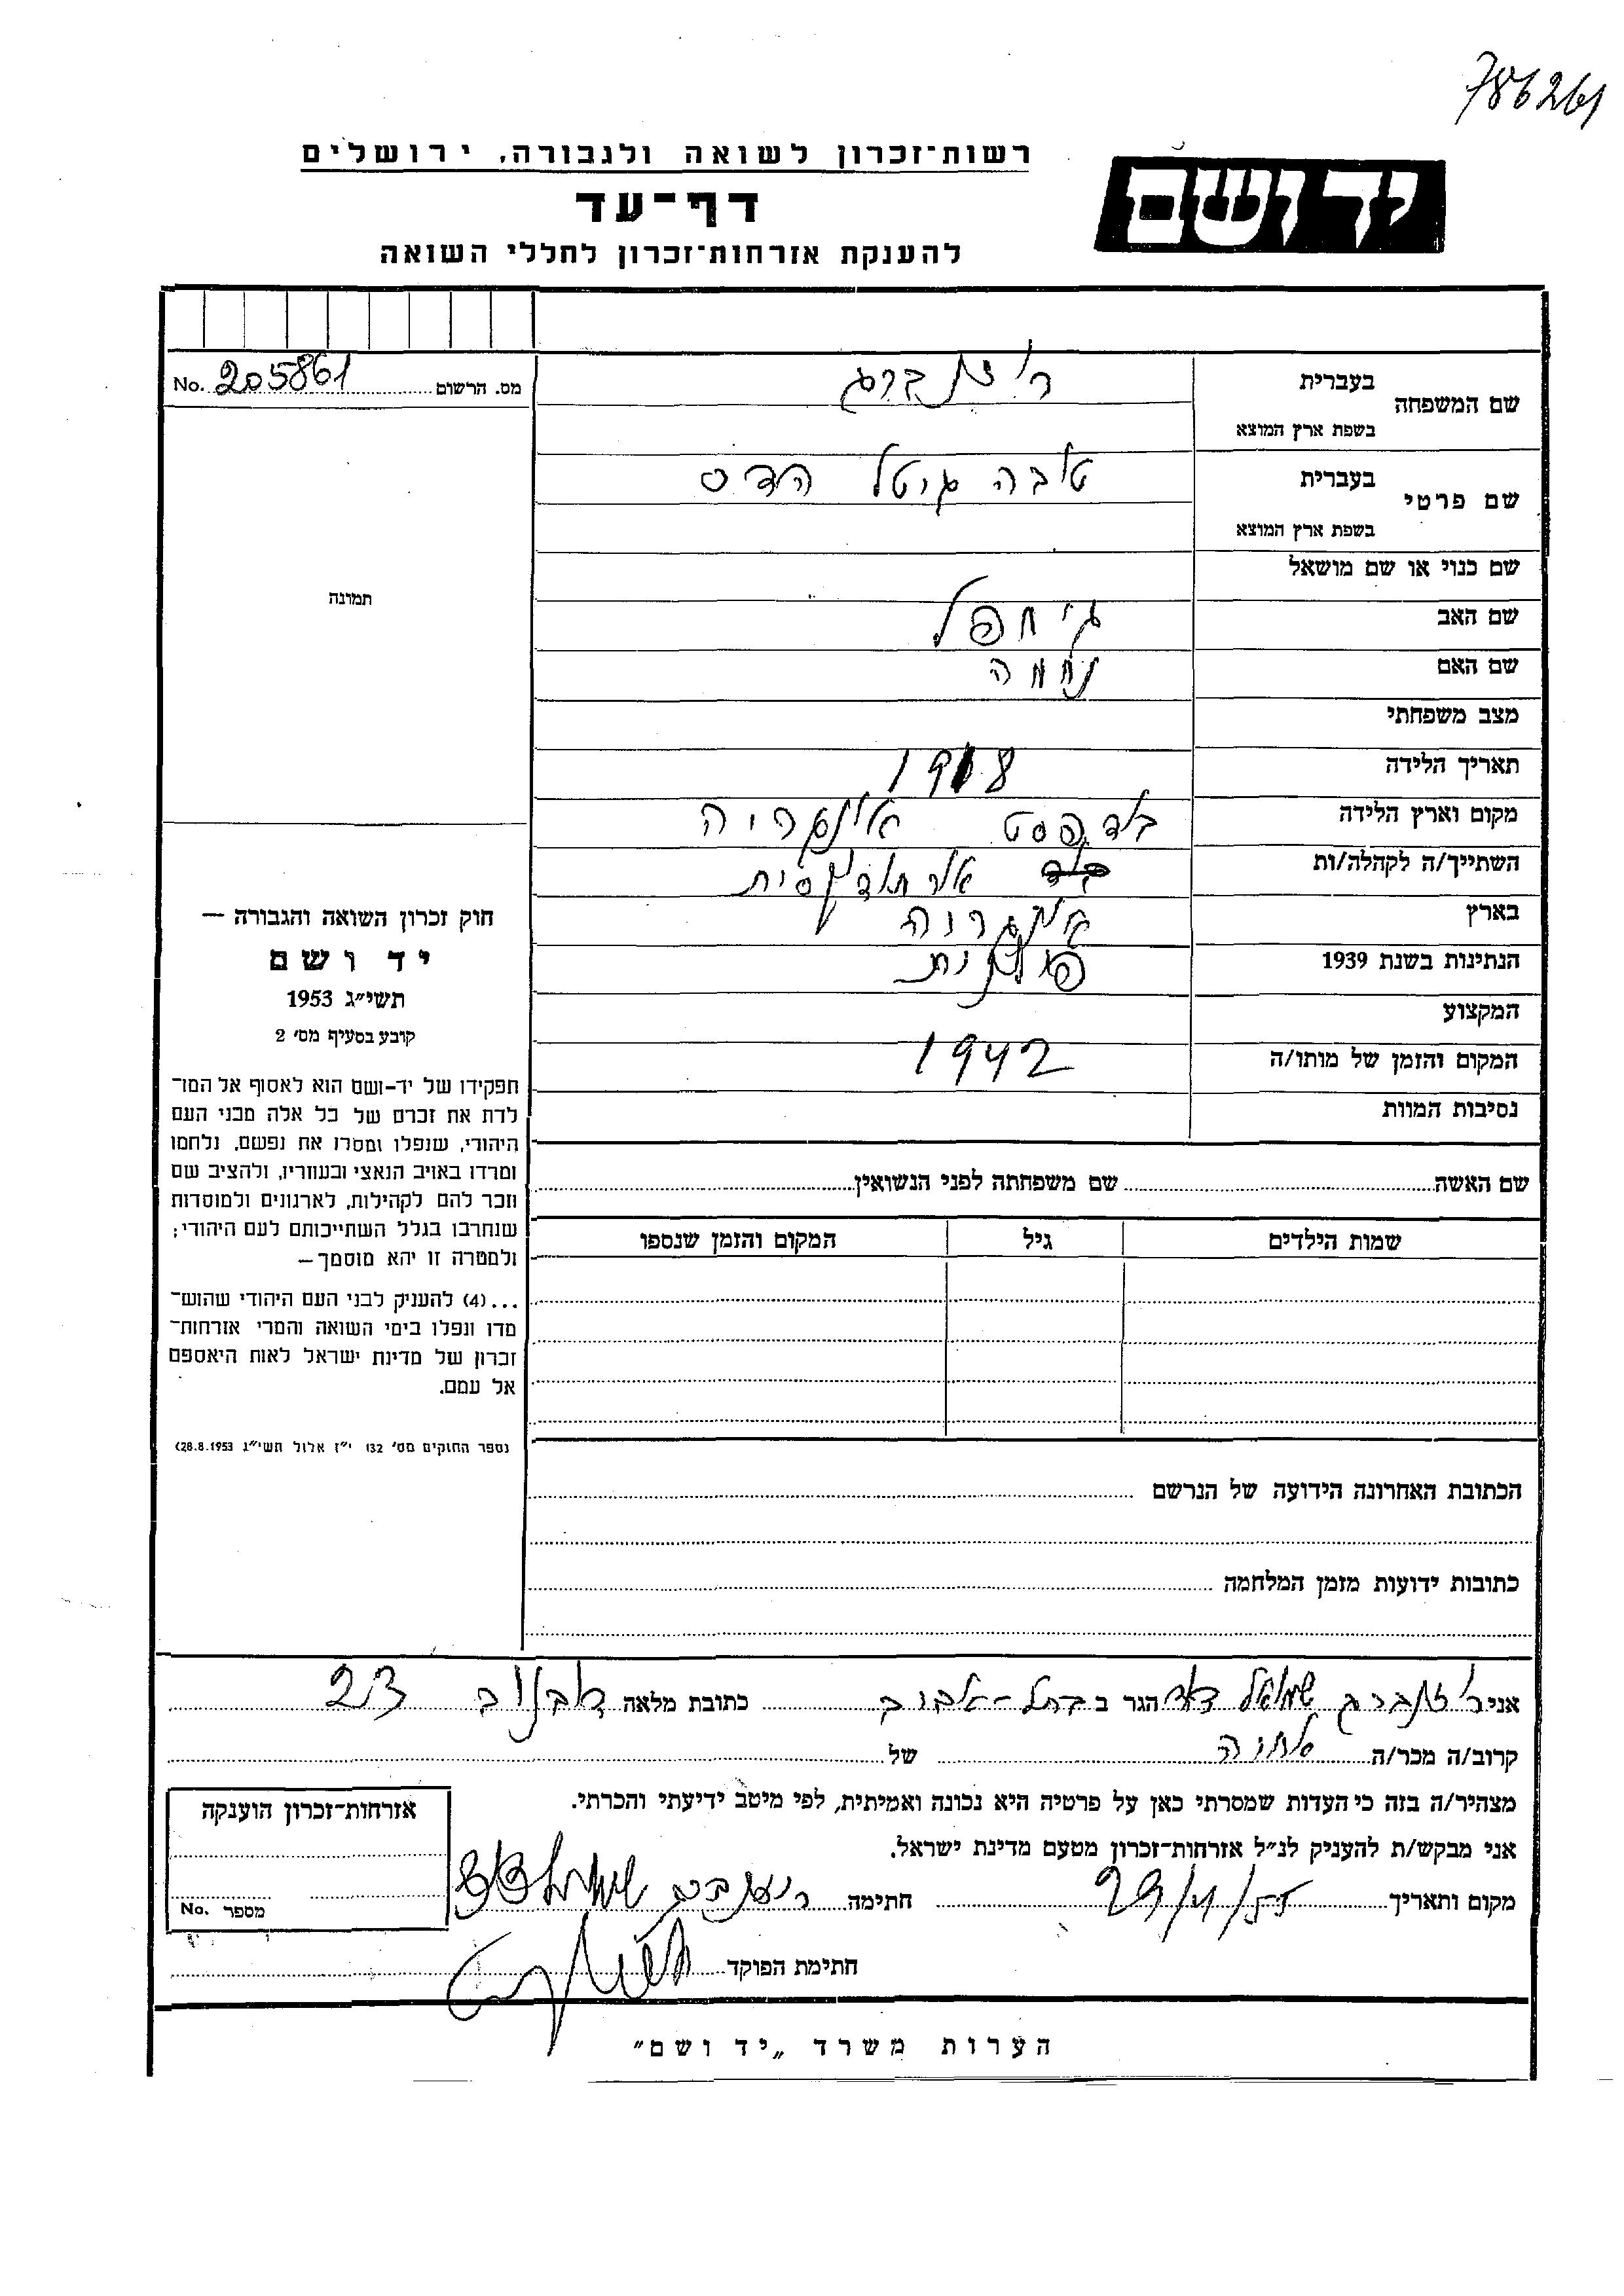 786261
רשות־זכרון לשואה ולגבורה, ירושלים
יד ושם
דף־עד
להענקת אזרחות־זכרון לחללי השואה
מס. הרשום 205861 No.
שם המשפחה
בעברית
בשפת ארץ המוצא
שם פרטי
בעברית טובה גיטל הדס
בשפת ארץ המוצא
שם כנוי או שם מושאל
שם האב
שם האם נחמה
מצב משפחתי
תאריך הלידה 1918
מקום וארץ הלידה בודפסט אונגריה
השתייך/ה לקהלה/ות אורתודוקסית
בארץ אונגריה
הנתינות בשנת 1939 פולנית
המקצוע
המקום והזמן של מותו/ה 1942
נסיבות המוות
תמונה
חוק זכרון השואה והגבורה —
יד ושם
תשי״ג 1953
קובע בסעיף מס׳ 2
תפקידו של יד־ושם הוא לאסוף אל המו־
לדת את זכרם של כל אלה מבני העם
היהודי, שנפלו ומסרו את נפשם, נלחמו
ומרדו באויב הנאצי ובעוזריו, ולהציב שם
וזכר להם לקהילות, לארגונים ולמוסדות
שנחרבו בגלל השתייכותם לעם היהודי;
ולמטרה זו יהא מוסמך —
...(4) להעניק לבני העם היהודי שהוש־
מדו ונפלו בימי השואה והמרי אזרחות־
זכרון של מדינת ישראל לאות היאספם
אל עמם.
(ספר החוקים מס׳ 132 י״ז אלול תשי״ג 28.8.1953)
שם האשה שם משפחתה לפני הנשואין
שמות הילדים גיל המקום והזמן שנספו
הכתובת האחרונה הידועה של הנרשם
כתובות ידועות מזמן המלחמה
אני שמואל דוד הגר ב בתל-אביב כתובת מלאה דובנוב 23
קרוב/ה מכר/ה אחיה של
מצהיר/ה בזה כי העדות שמסרתי כאן על פרטיה היא נכונה ואמיתית, לפי מיטב ידיעתי והכרתי.
אני מבקש/ת להעניק לנ״ל אזרחות־זכרון מטעם מדינת ישראל.
מקום ותאריך 29/4/55 חתימה
חתימת הפוקד
אזרחות־זכרון הוענקה
מספר No.
הערות משרד „יד ושם״